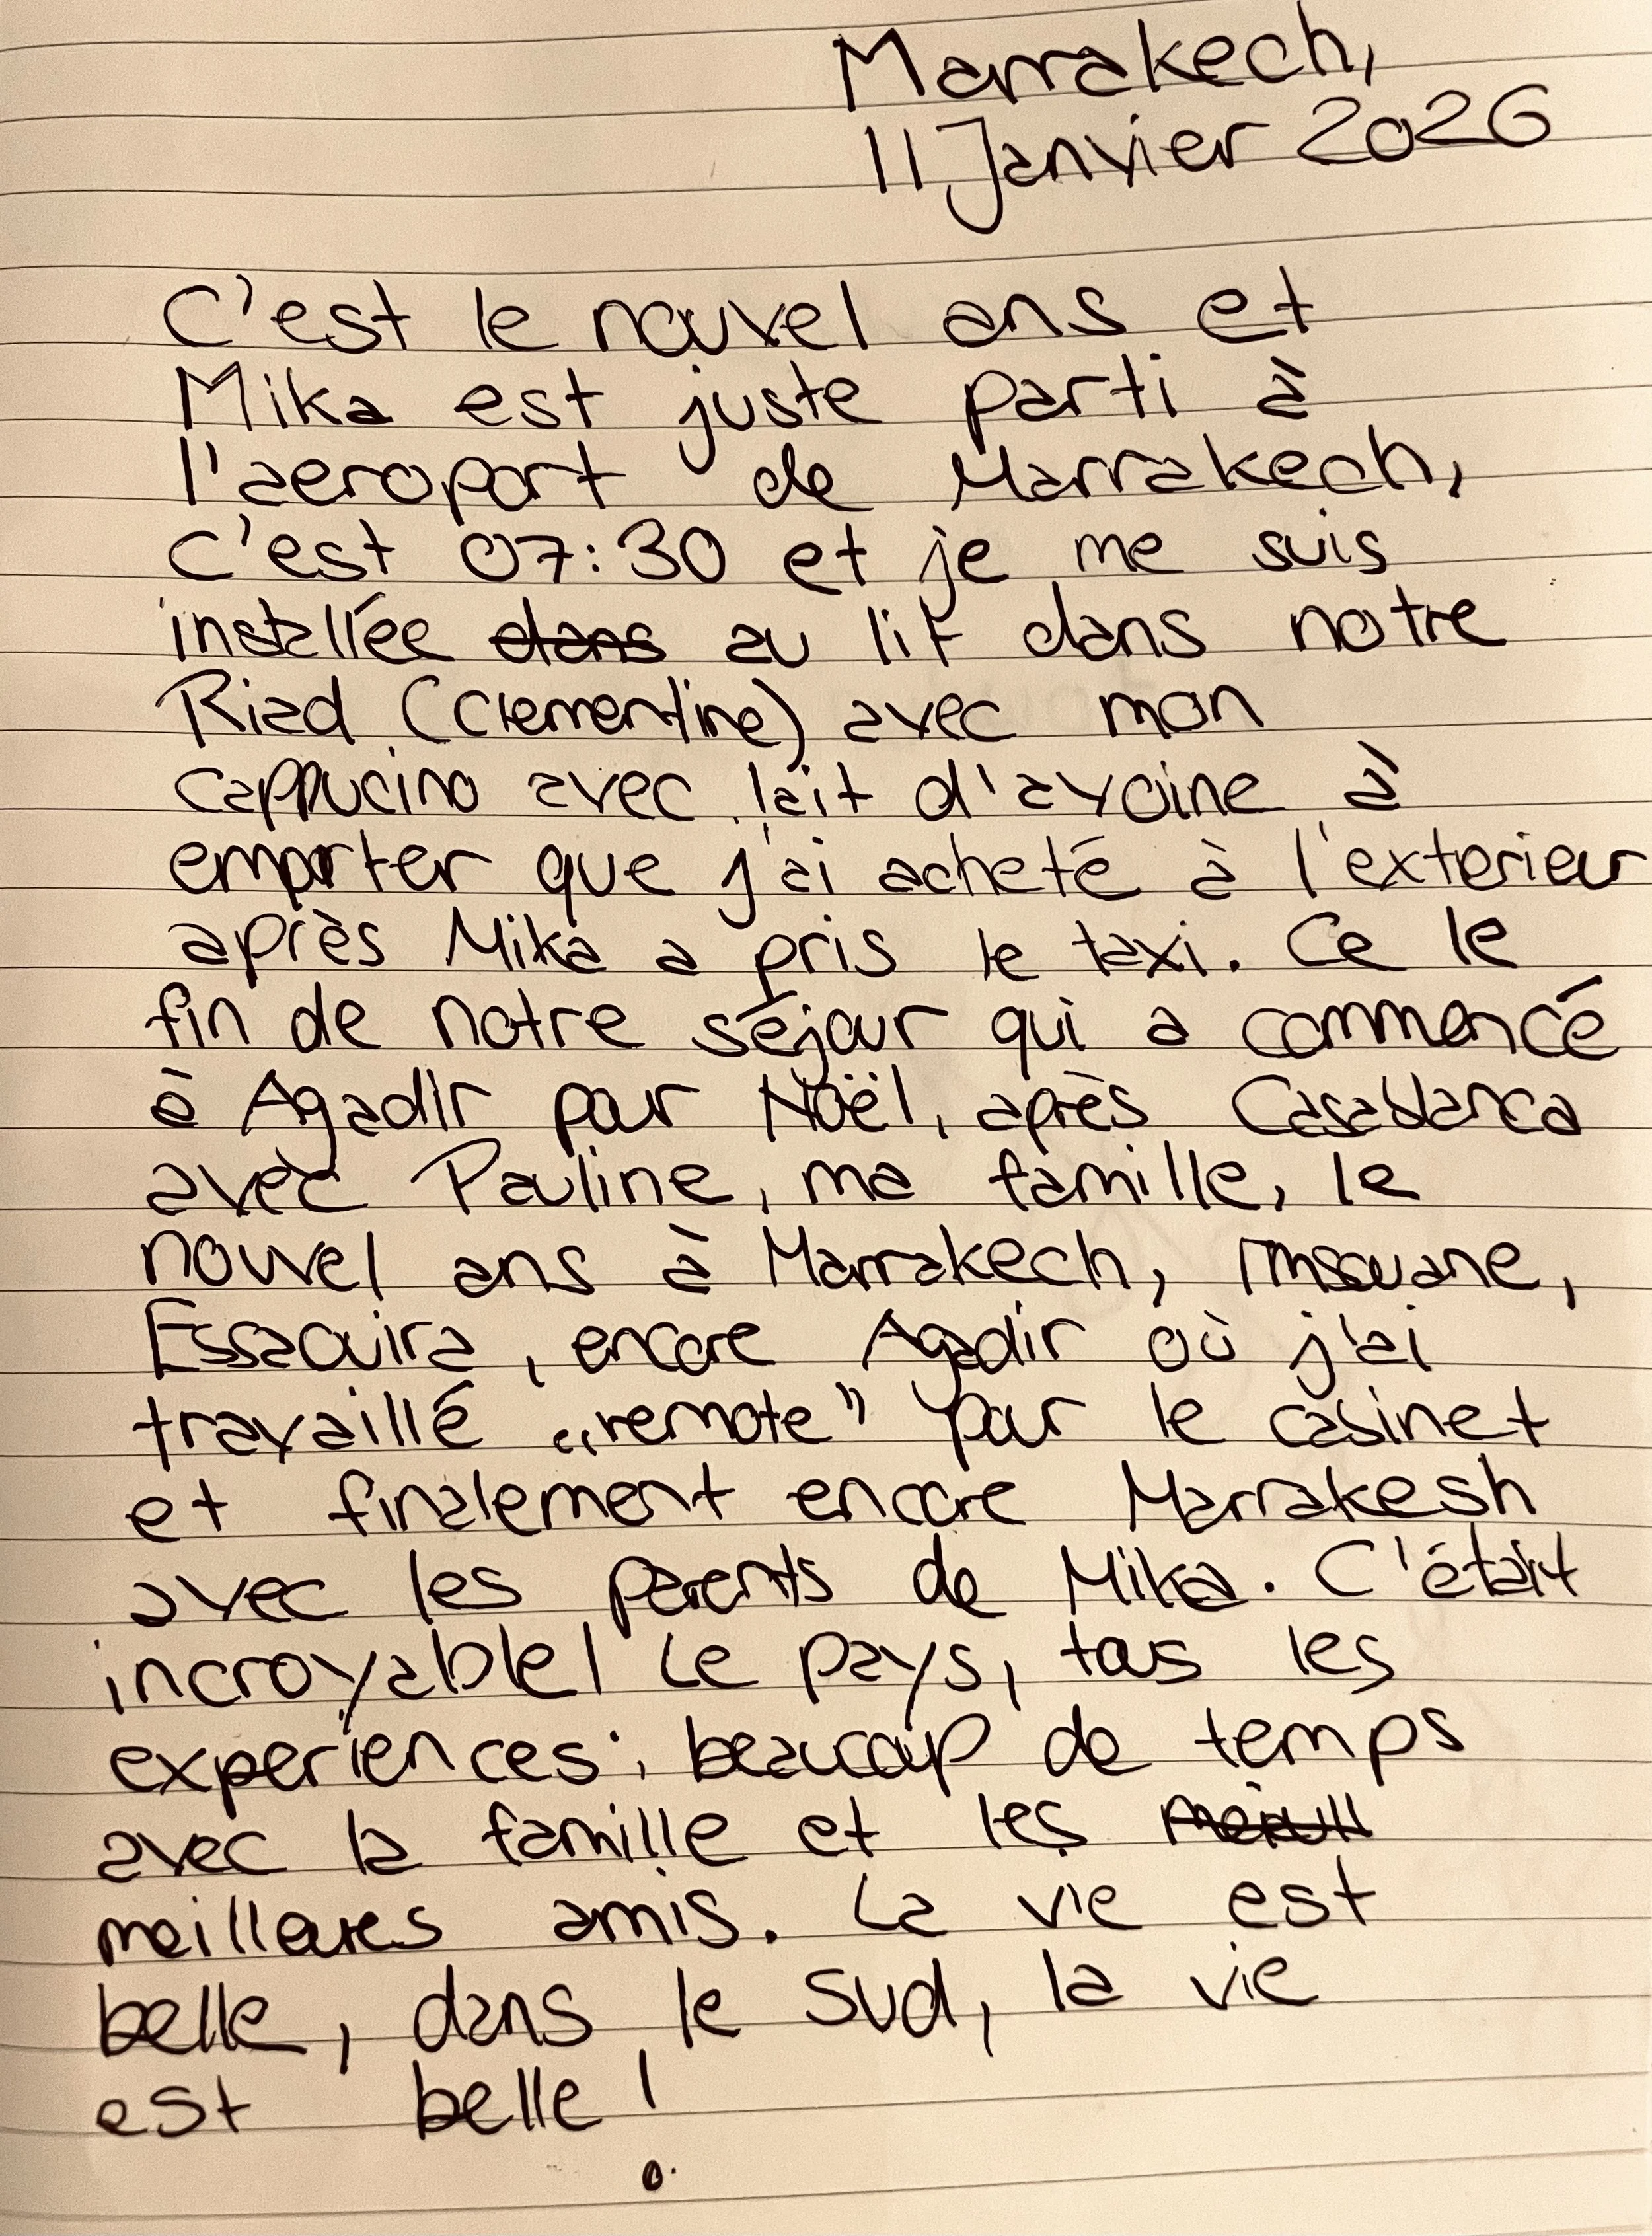 Marrakech,
11 Janvier 2026
C'est le nouvel ans et
Mika est juste parti à
l'aeroport de Marrakech,
c'est 07:30 et je me suis
installée dans au lit dans notre
Riad (Clementine) avec mon
cappucino avec lait d'avoine à
emporter que j'ai acheté à l'exterieur
après Mika a pris le taxi. Ce le
fin de notre séjour qui a commencé
à Agadir pour Noël, après Casablanca
avec Pauline, ma famille, le
nouvel ans à Marrakech, Imsouane,
Essaouira, encore Agadir où j'ai
travaillé „remote" pour le cabinet
et finalement encore Marrakesh
avec les parents de Mika. C'était
incroyable! Le pays, tous les
experiences, beaucoup de temps
avec la famille et les
meilleures amis. La vie est
belle, dans le Sud, la vie
est belle!